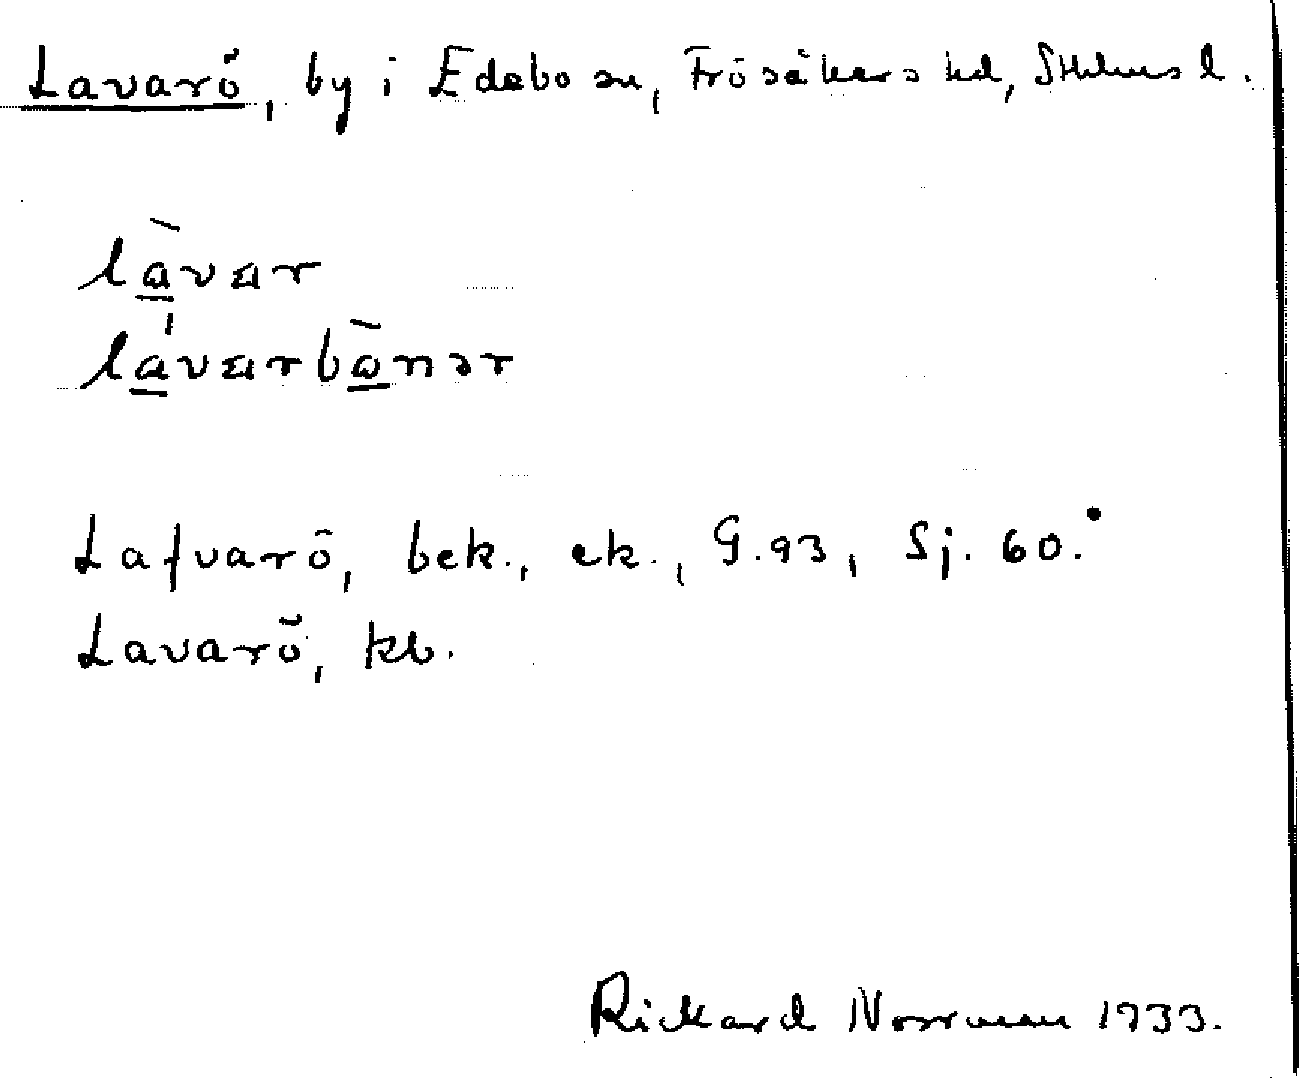 Lavarö, by i Edebo sn, Frösåkers hd, Sthlms l.
làvar
lávarbònər
Lafvarö, bek., ek., G.93, Sj. 60.
Lavarö, kb.
Rickard Norrman 1933.